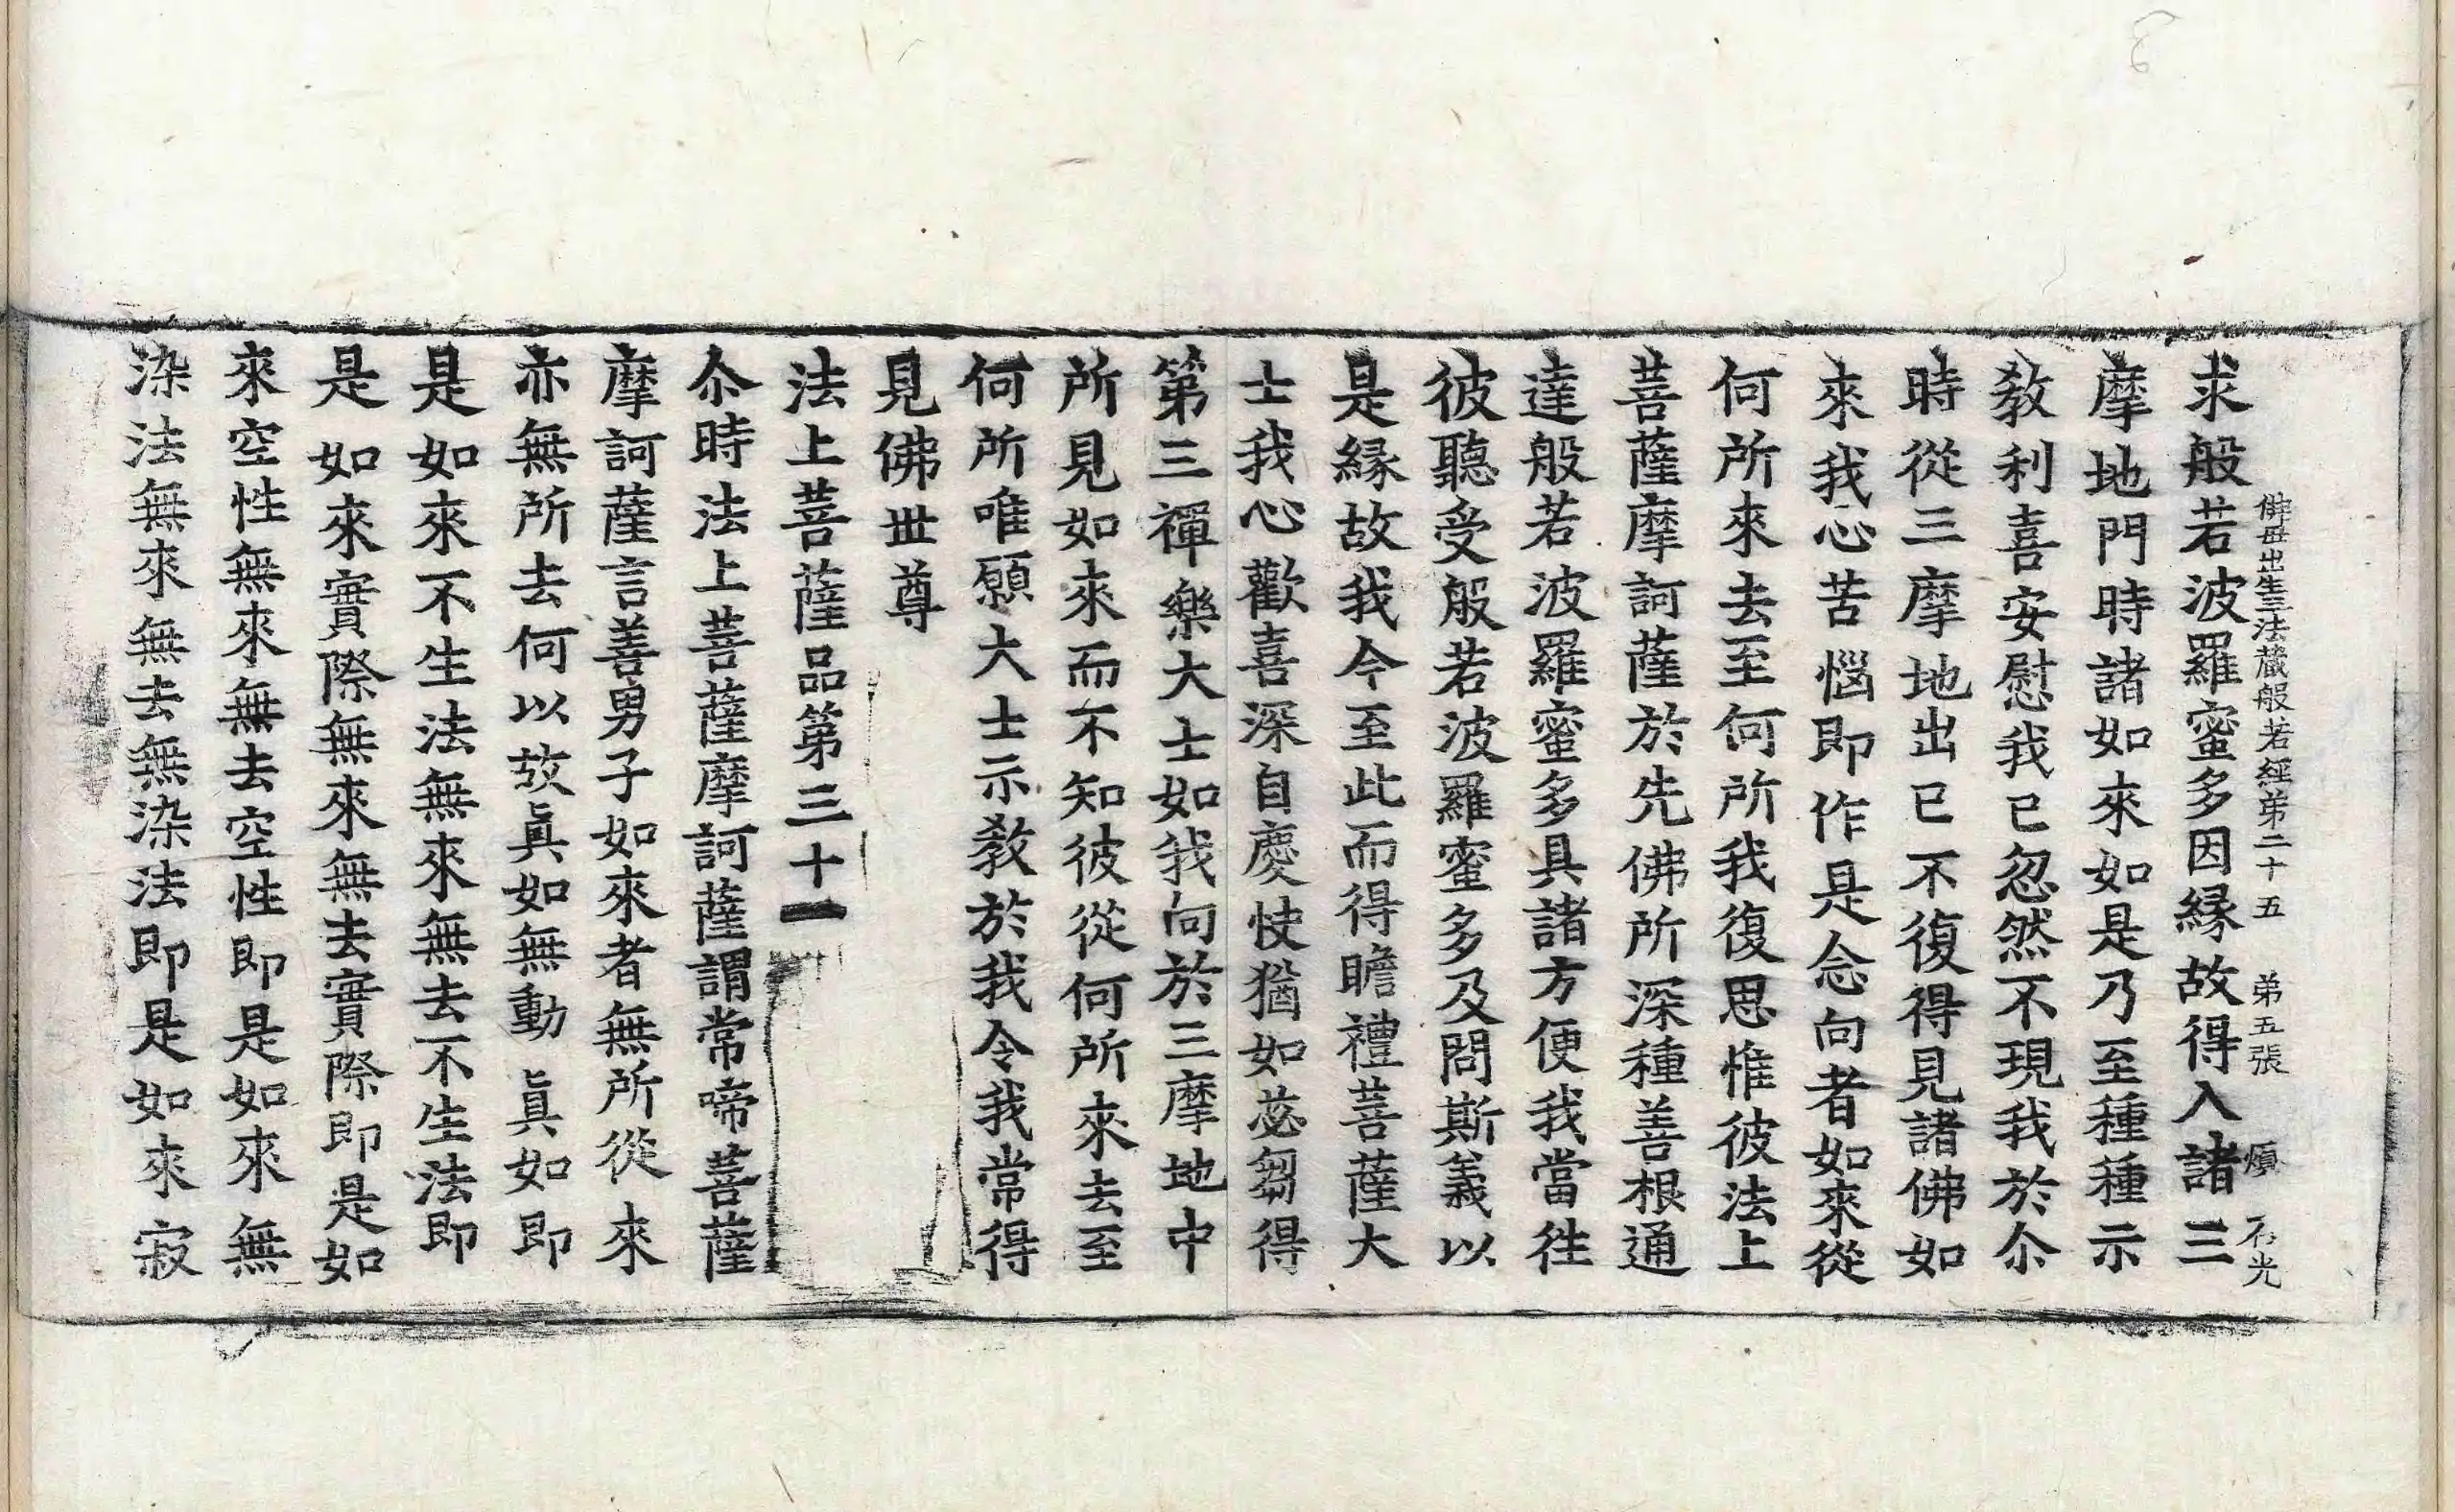 佛母出生三法藏般若經第二十五　第五張　煩　石光
求般若波羅蜜多因緣故得入諸三
摩地門時諸如來如是乃至種種示
教利喜安慰我已忽然不現我於尒
時從三摩地出已不復得見諸佛如
來我心苦惱即作是念向者如來從
何所來去至何所我復思惟彼法上
菩薩摩訶薩於先佛所深種善根通
達般若波羅蜜多具諸方便我當往
彼聽受般若波羅蜜多及問斯義以
是緣故我今至此而得瞻禮菩薩大
士我心歡喜深自慶快猶如苾芻得
第三禪樂大士如我向於三摩地中
所見如來而不知彼從何所來去至
何所唯願大士示教於我令我常得
見佛世尊
法上菩薩品第三十一
尒時法上菩薩摩訶薩謂常啼菩薩
摩訶薩言善男子如來者無所從來
亦無所去何以故眞如無動眞如即
是如來不生法無來無去不生法即
是如來實際無來無去實際即是如
來空性無來無去空性即是如來無
染法無來無去無染法即是如來寂